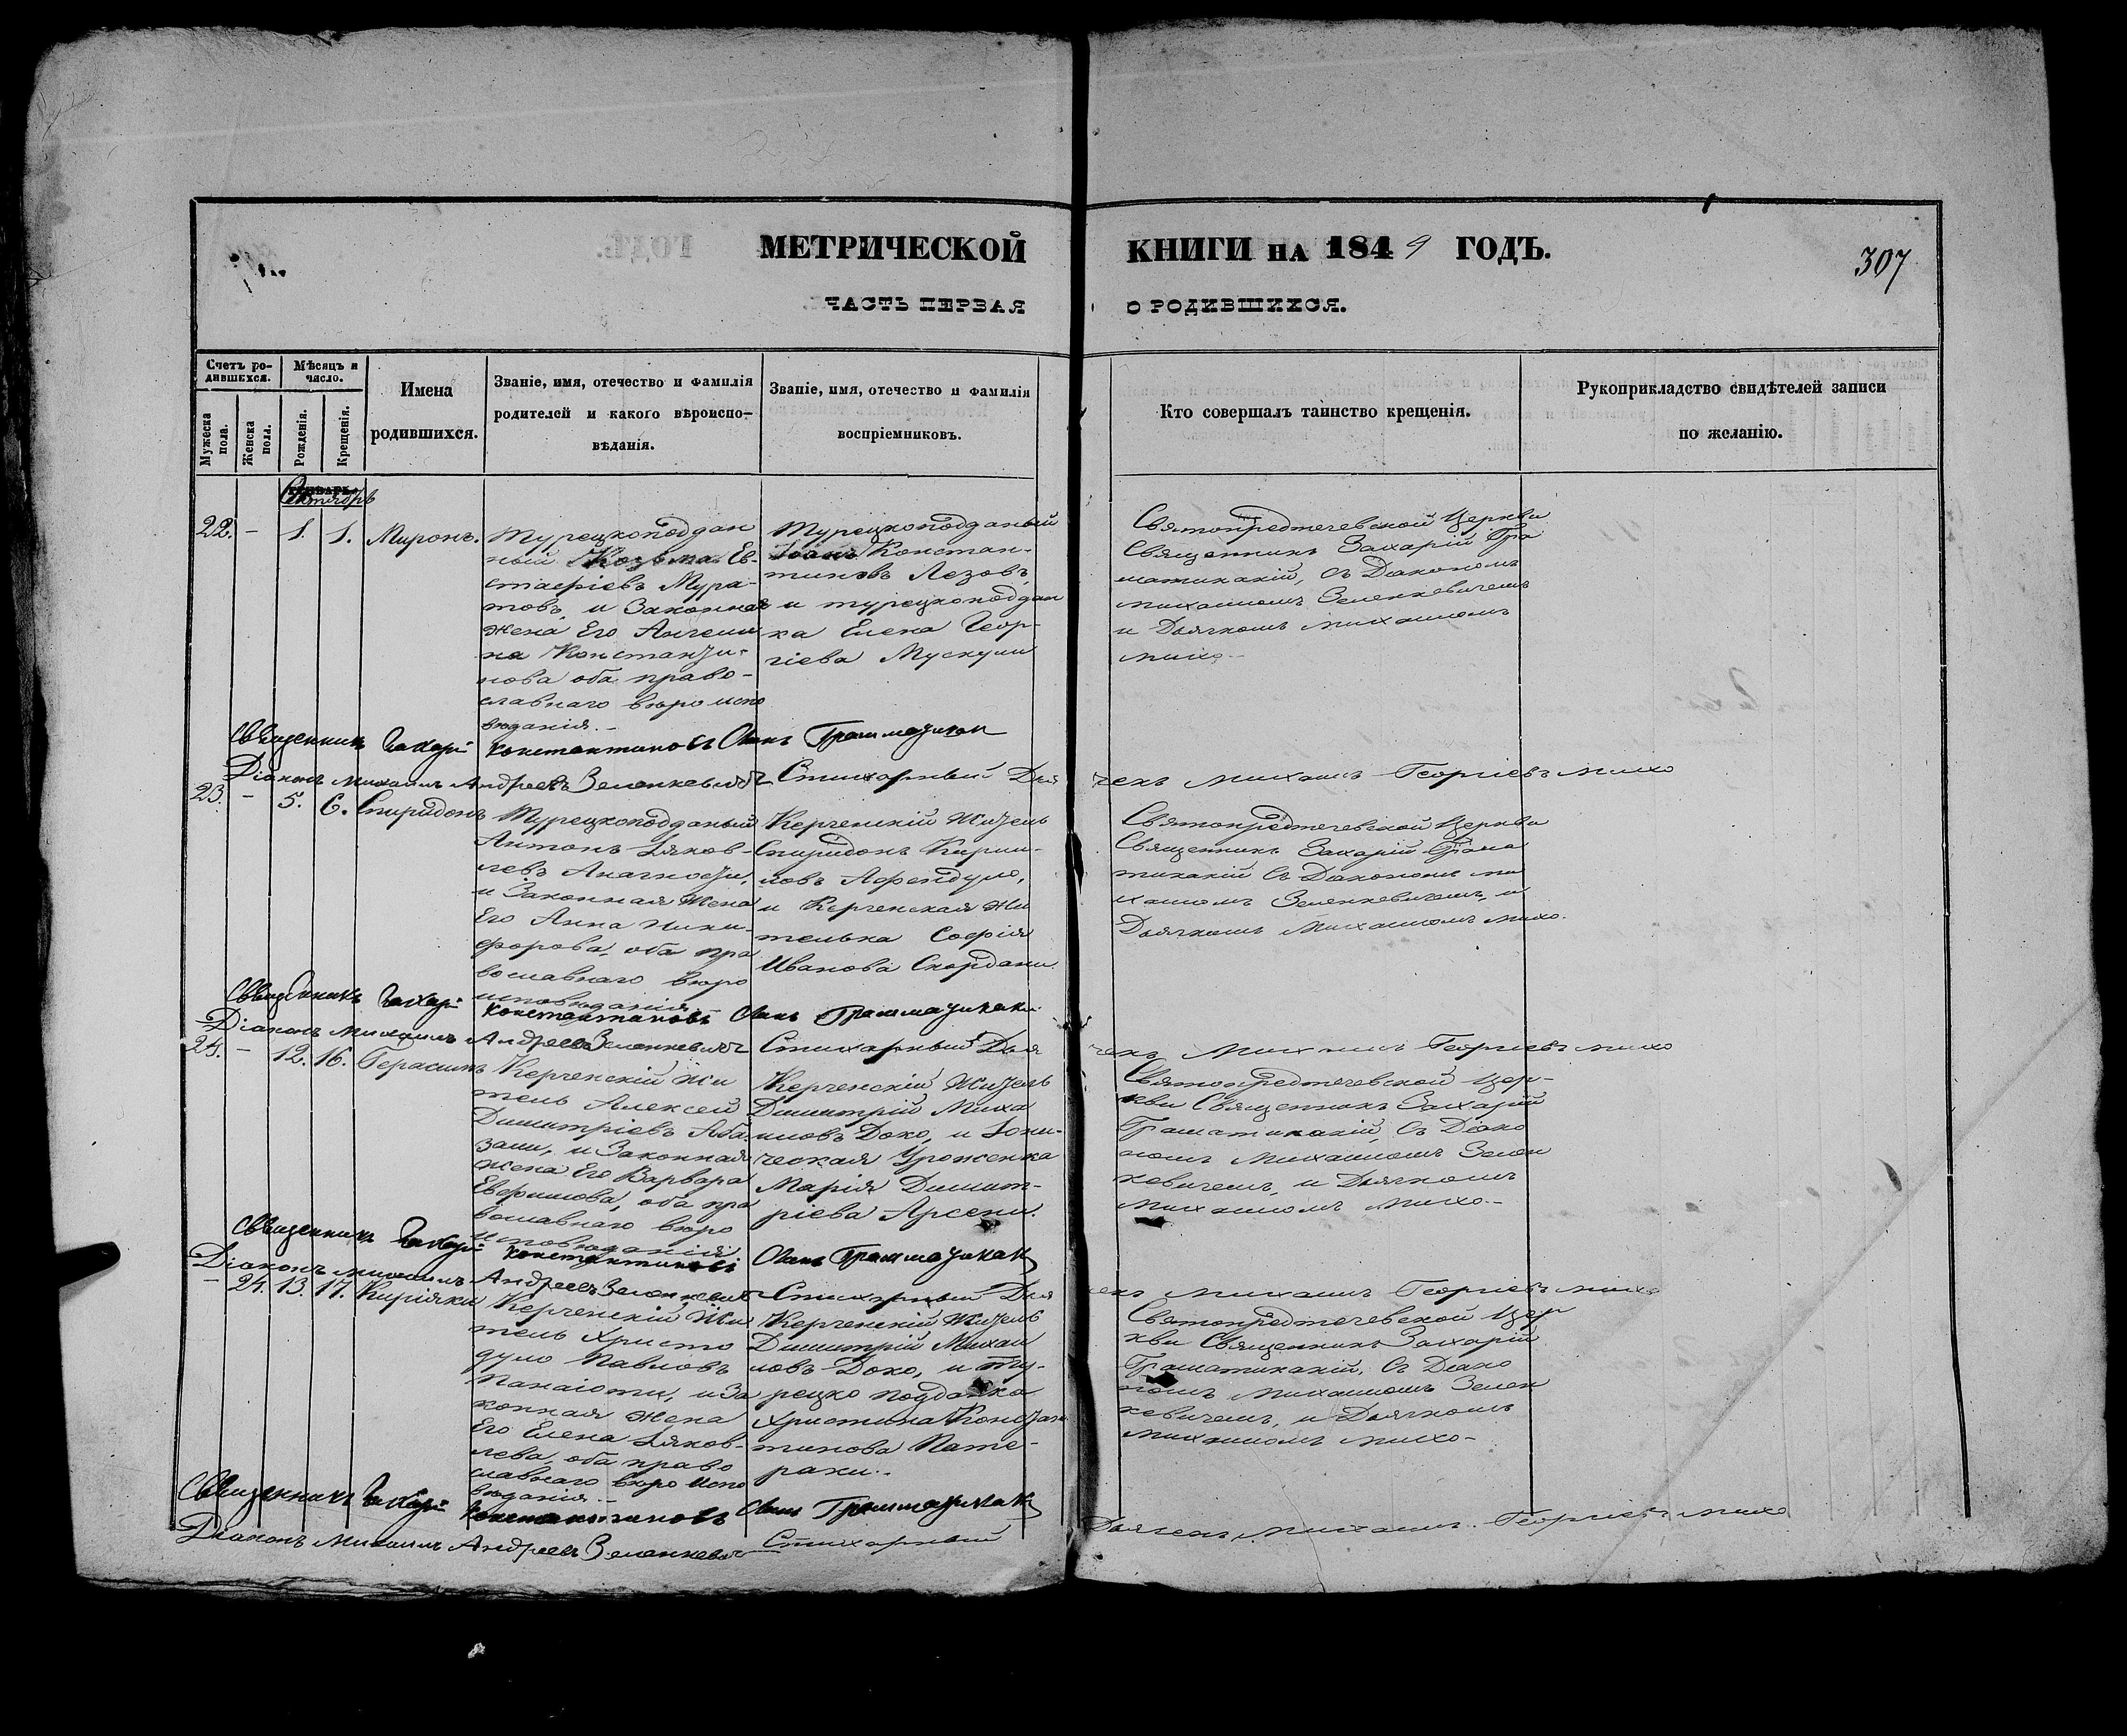 МЕТРИЧЕСКОЙ КНИГИ НА 1849 ГОДЪ.
307
ЧАСТЬ ПЕРВАЯ О РОДИВШИХСЯ.
Счетъ ро-
дившихся.
Мужеска
пола.
Женска
пола.
Мѣсяцъ и
число.
Рожденія.
Крещенія.
Имена
родившихся.
Званіе, имя, отечество и фамилія
родителей и какого вѣроиспо-
вѣданія.
Званіе, имя, отечество и фамилія
воспріемниковъ.
Кто совершалъ таинство крещенія.
Рукоприкладство свидѣтелей записи
по желанію.
22. - 1. 1. Миронъ.
Турецкоподдан
ный Козьма Ев-
стафіевъ Мура-
товъ, и Законная
жена Его Ангели
на Константи-
нова оба право-
славнаго вѣроиспо
вѣданія.-
Турецкоподданый
Іоанъ Констан-
тиновъ Лезовъ,
и турецкоподдан
ка Елена Геор-
гіева Мускули
Святопредтечевской Церкви
Священникъ Захарій Гра
матикакій, съ Діакономъ
Михаиломъ Зеленкевичемъ
и Дьячкомъ Михаиломъ
Михо-
Священникъ Захарій Константиновъ Сынъ Грамматикаки
Діаконъ Михаилъ Андреевъ Зеленкевичъ Стихарный Дья
чекъ Михаилъ Георгіевъ Михо
23. - 5. 6. Спиридонъ
Турецкоподданый
Антонъ Яков-
левъ Анагности,
и Законная Жена
Его Анна Ники-
форова, оба пра
вославнаго вѣро
исповѣданія
Керченскій Житель
Спиридонъ Кирил-
ловъ Афендуло,
и Керченская Жи
телька Софія
Иванова Скордани.
Святопредтечевской Церкви
Священникъ Захарій Грама
тикакій Съ Діакономъ Ми
хаиломъ Зеленкевичемъ, и
Дьячкомъ Михаиломъ Михо.
Священникъ Захарій Константиновъ Сынъ Грамматикаки
Діаконъ Михаилъ Андреевъ Зеленкевичъ Стихарный Дья
чекъ Михаилъ Георгіевъ Михо
24. - 12. 16. Герасимъ
Керченскій Жи
тель Алексей
Димитріевъ Аба-
зали, и Законная
жена Его Варвара
Ефимова, оба пра
вославнаго вѣро
исповѣданія
Керченскій Житель
Димитрій Миха
иловъ Доко, и Іони-
ческая Уроженка
Марія Димит-
ріева Арсени.
Святопредтечевской Цер-
кви Священникъ Захарій
Граматикакій, Съ Діако
номъ Михаиломъ Зелен
кевичемъ, и Дьячкомъ
Михаиломъ Михо.-
Священникъ Захарій Константиновъ Сынъ Грамматикаки
Діаконъ Михаилъ Андреевъ Зеленкевичъ Стихарный Дья
чекъ Михаилъ Георгіевъ Михо
- 24. 13. 17. Киріяки
Керченскій Жи
тель Христо
дуло Павловъ
Панаіоти, и За
конная жена
Его Елена Яков-
лева, оба право
славнаго вѣроиспо
вѣданія.-
Керченскій Житель
Димитрій Михаи
ловъ Доко, и Ту-
рецко подданка
Христина Констан
тинова Пате-
раки.-
Святопредтечевской Цер
кви Священникъ Захарій
Граматикакій, Съ Діако
номъ Михаиломъ Зелен
кевичемъ, и Дьячкомъ
Михаиломъ Михо-
Священникъ Захарій Константиновъ Сынъ Грамматикаки
Діаконъ Михаилъ Андреевъ Зеленкевичъ Стихарный
Дьячекъ Михаилъ Георгіевъ Михо